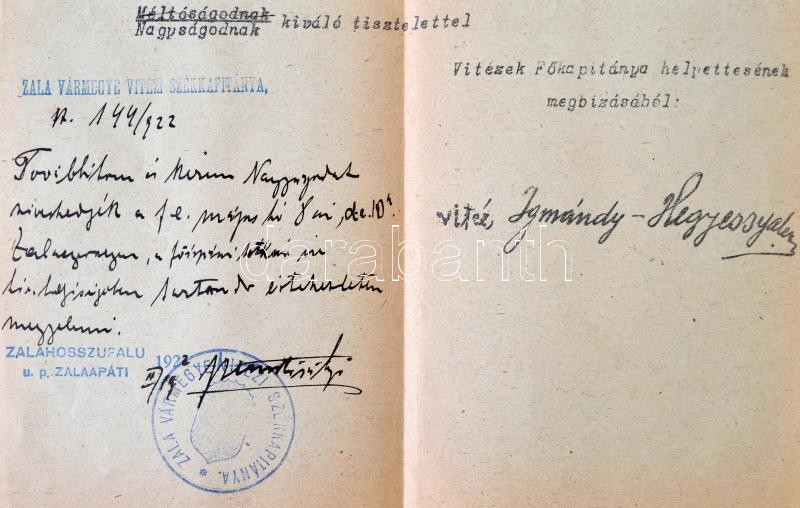 Méltóságodnak
Nagyságodnak kiváló tisztelettel
ZALA VÁRMEGYE VITÉZI SZÉKKAPITÁNYA,
144/922
Továbbítom és kérem Nagyságodat
szíveskedjék a f. é. május hó 8án, de. 10h
Zalaegerszegen, a főispáni
tartandó értekezleten
megjelenni.
ZALAHOSSZUFALU
u. p. ZALAAPÁTI
1922
ZALA VÁRMEGYE VITÉZI SZÉKKAPITÁNYA.
Vitézek Főkapitánya helyettesének
megbizásábél:
vitéz, Igmándy-Hegyessy
darabanth